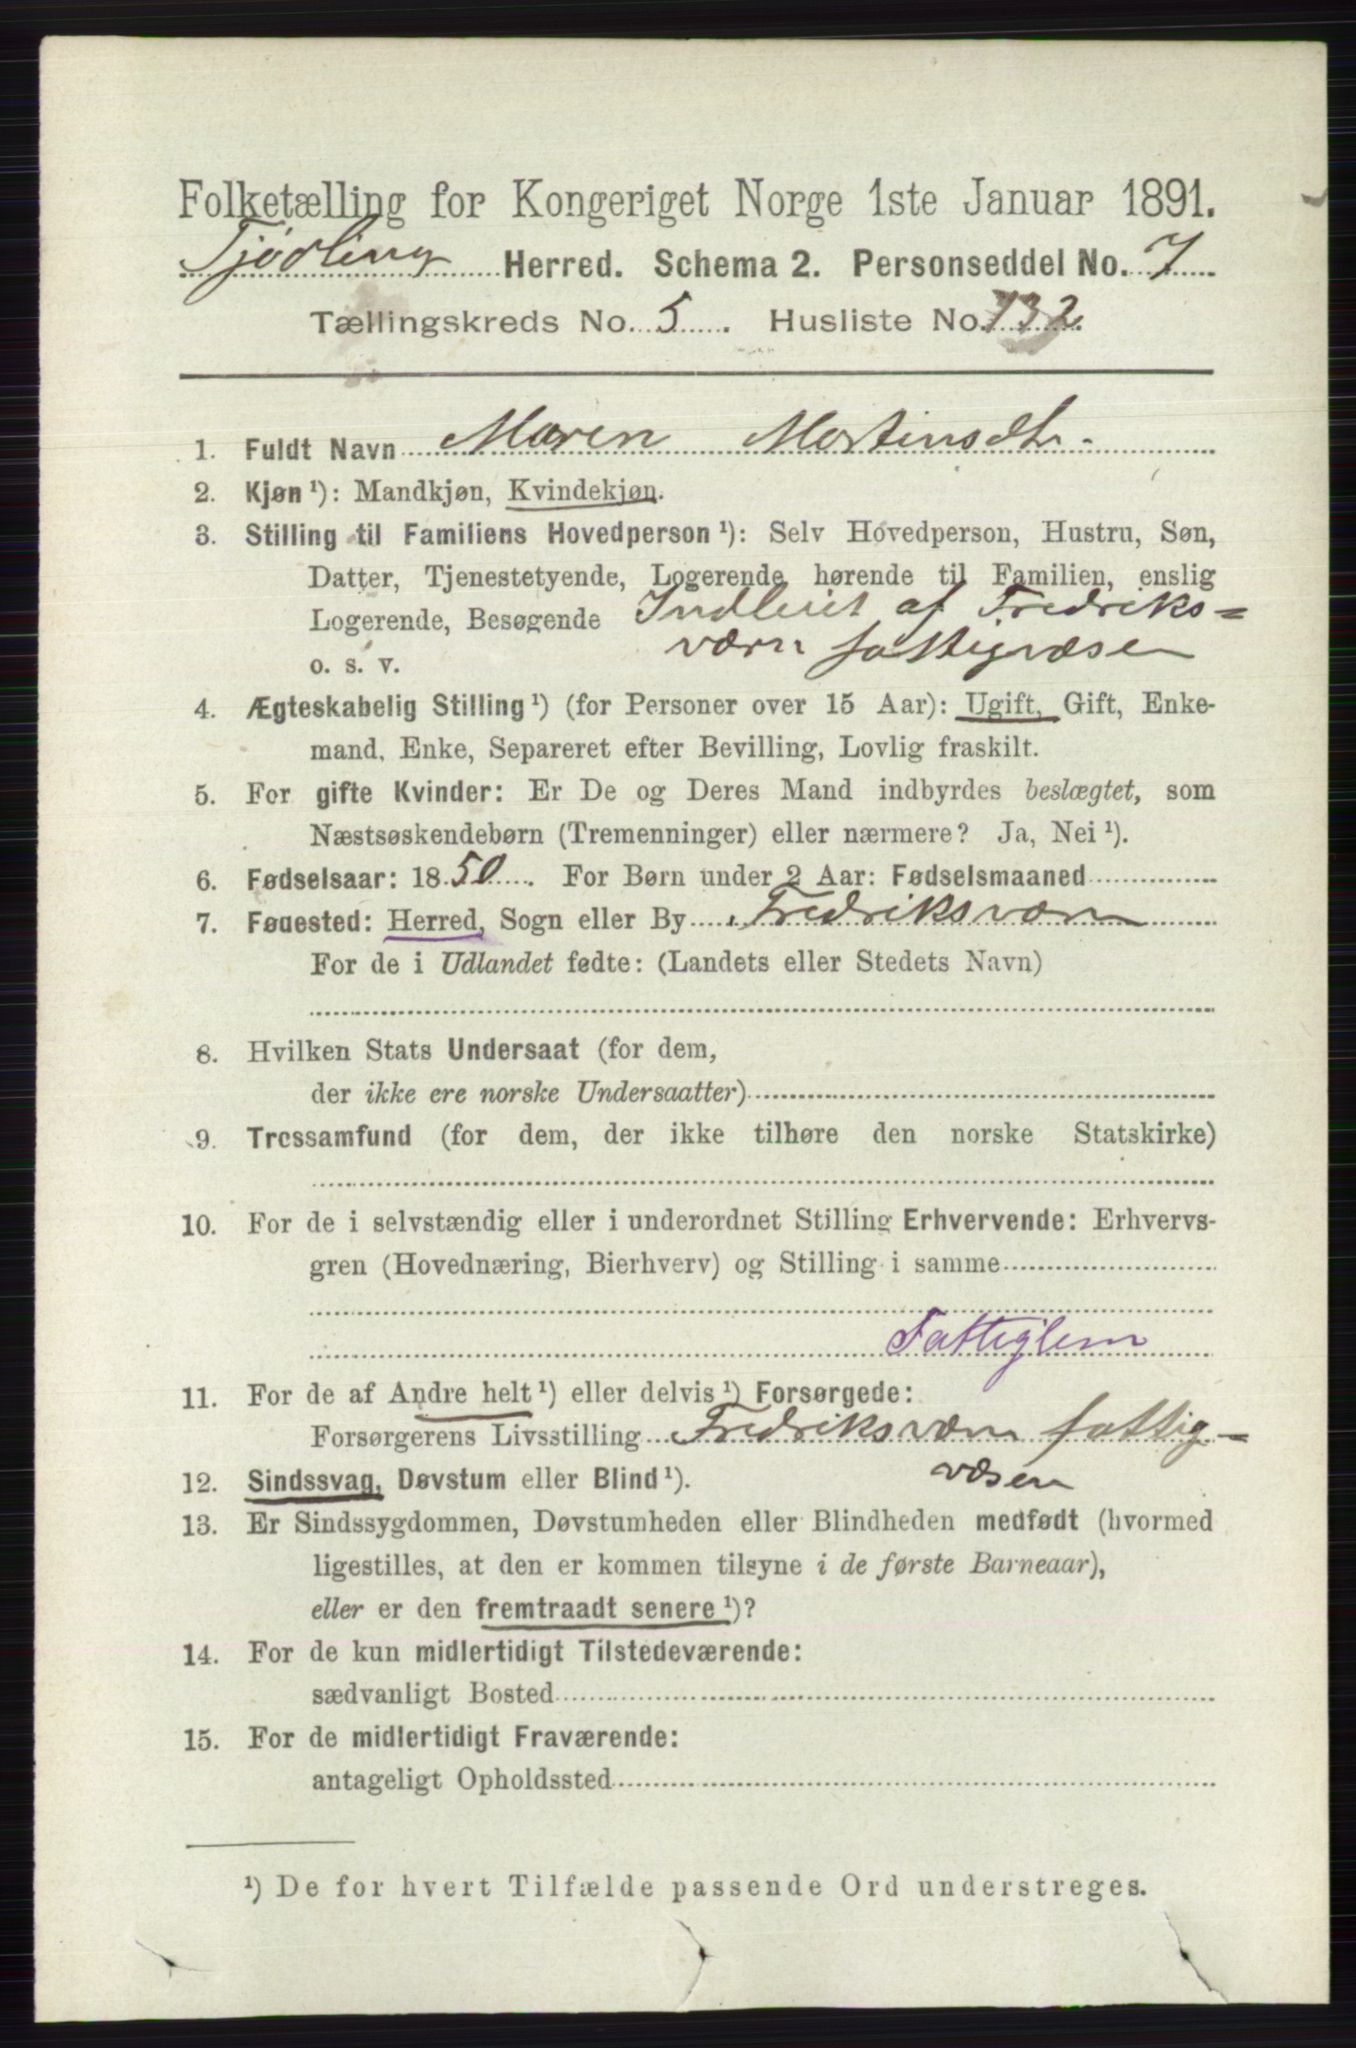 Folketælling for Kongeriget Norge 1ste Januar 1891.
Tjødling Herred. Schema 2. Personseddel No. 7
Tællingskreds No. 5. Husliste No. 132.
1. Fuldt Navn Maren Martinsdtr.
2. Kjøn ¹): Mandkjøn, Kvindekjøn.
3. Stilling til Familiens Hovedperson ¹): Selv Hovedperson, Hustru, Søn,
Datter, Tjenestetyende, Logerende hørende til Familien, enslig
Logerende, Besøgende Indleiet af Fredriks=
o. s. v. værn fattigvæsen
4. Ægteskabelig Stilling ¹) (for Personer over 15 Aar): Ugift, Gift, Enke-
mand, Enke, Separeret efter Bevilling, Lovlig fraskilt.
5. For gifte Kvinder: Er De og Deres Mand indbyrdes beslægtet, som
Næstsøskendebørn (Tremenninger) eller nærmere? Ja, Nei ¹).
6. Fødselsaar: 1850. For Børn under 2 Aar: Fødselsmaaned
7. Føuested: Herred, Sogn eller By Fredriksværn
For de i Udlandet fødte: (Landets eller Stedets Navn)
8. Hvilken Stats Undersaat (for dem,
der ikke ere norske Undersaatter)
9. Trossamfund (for dem, der ikke tilhøre den norske Statskirke)
10. For de i selvstændig eller i underordnet Stilling Erhvervende: Erhvervs-
gren (Hovednæring, Bierhverv) og Stilling i samme
Fattiglem
11. For de af Andre helt ¹) eller delvis ¹) Forsørgede:
Forsørgerens Livsstilling Fredriksværn fattig-
væsen
12. Sindssvag, Døvstum eller Blind ¹).
13. Er Sindssygdommen, Døvstumheden eller Blindheden medfødt (hvormed
ligestilles, at den er kommen tilsyne i de første Barneaar),
eller er den fremtraadt senere ¹)?
14. For de kun midlertidigt Tilstedeværende:
sædvanligt Bosted
15. For de midlertidigt Fraværende:
antageligt Opholdssted
¹) De for hvert Tilfælde passende Ord understreges.